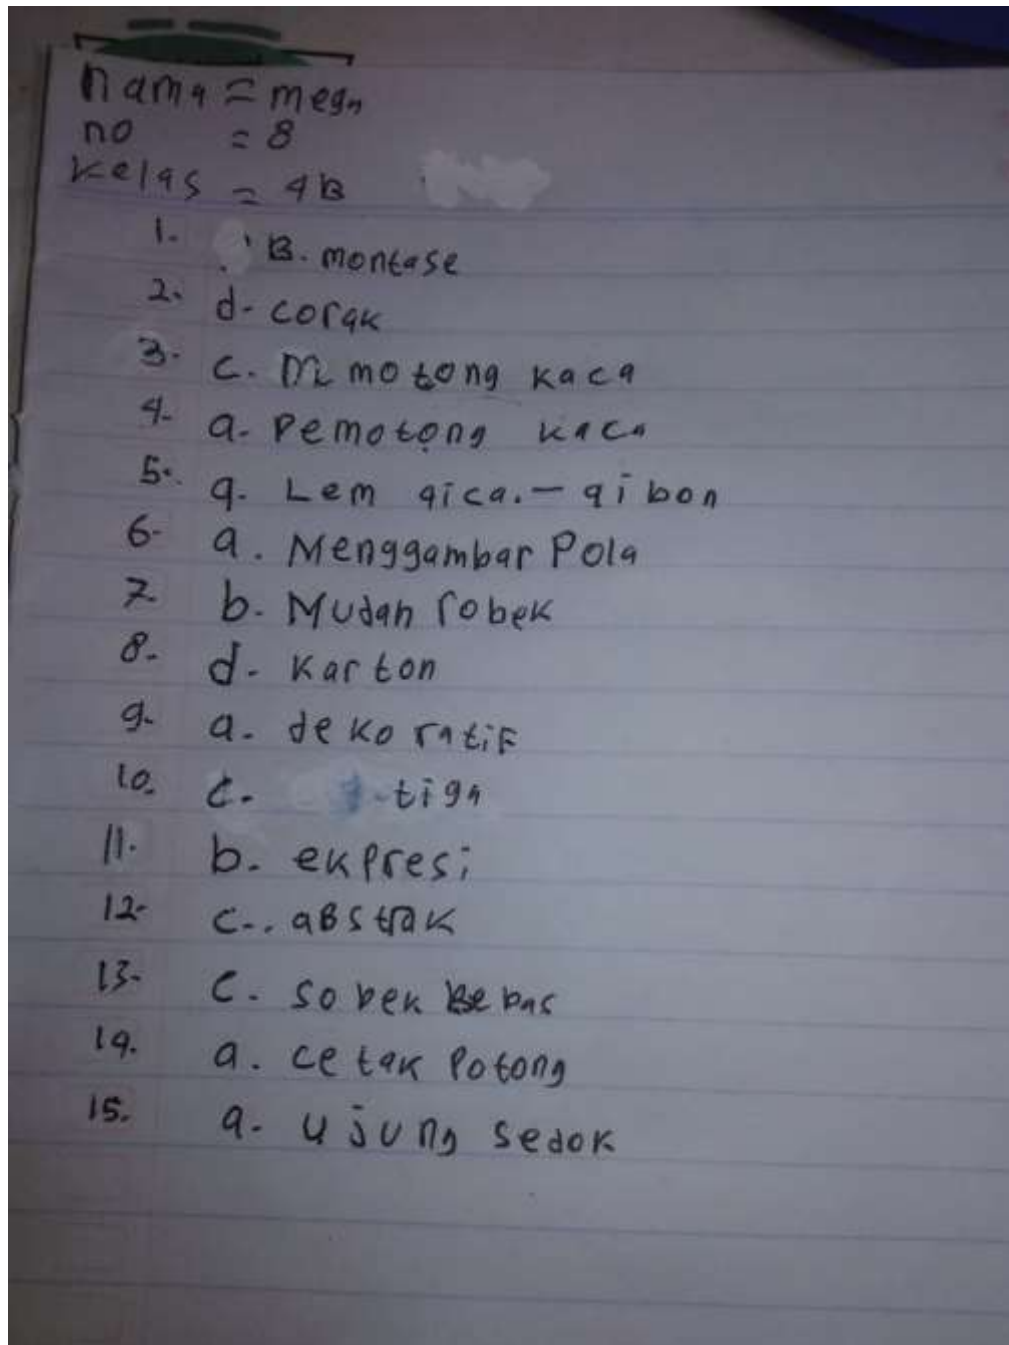 nama = mega
no = 8
kelas = 4B
1. B. montase
2. d. corak
3. c. Memotong kaca
4. a. Pemotong kaca
5. a. Lem aica. - aibon
6. a. Menggambar Pola
7. b. Mudah robek
8. d. Karton
9. a. dekoratif
10. c. tiga
11. b. ekpresi
12. c.. aBstrak
13. c. sobek Bebas
14. a. cetak Potong
15. a. ujung sedok